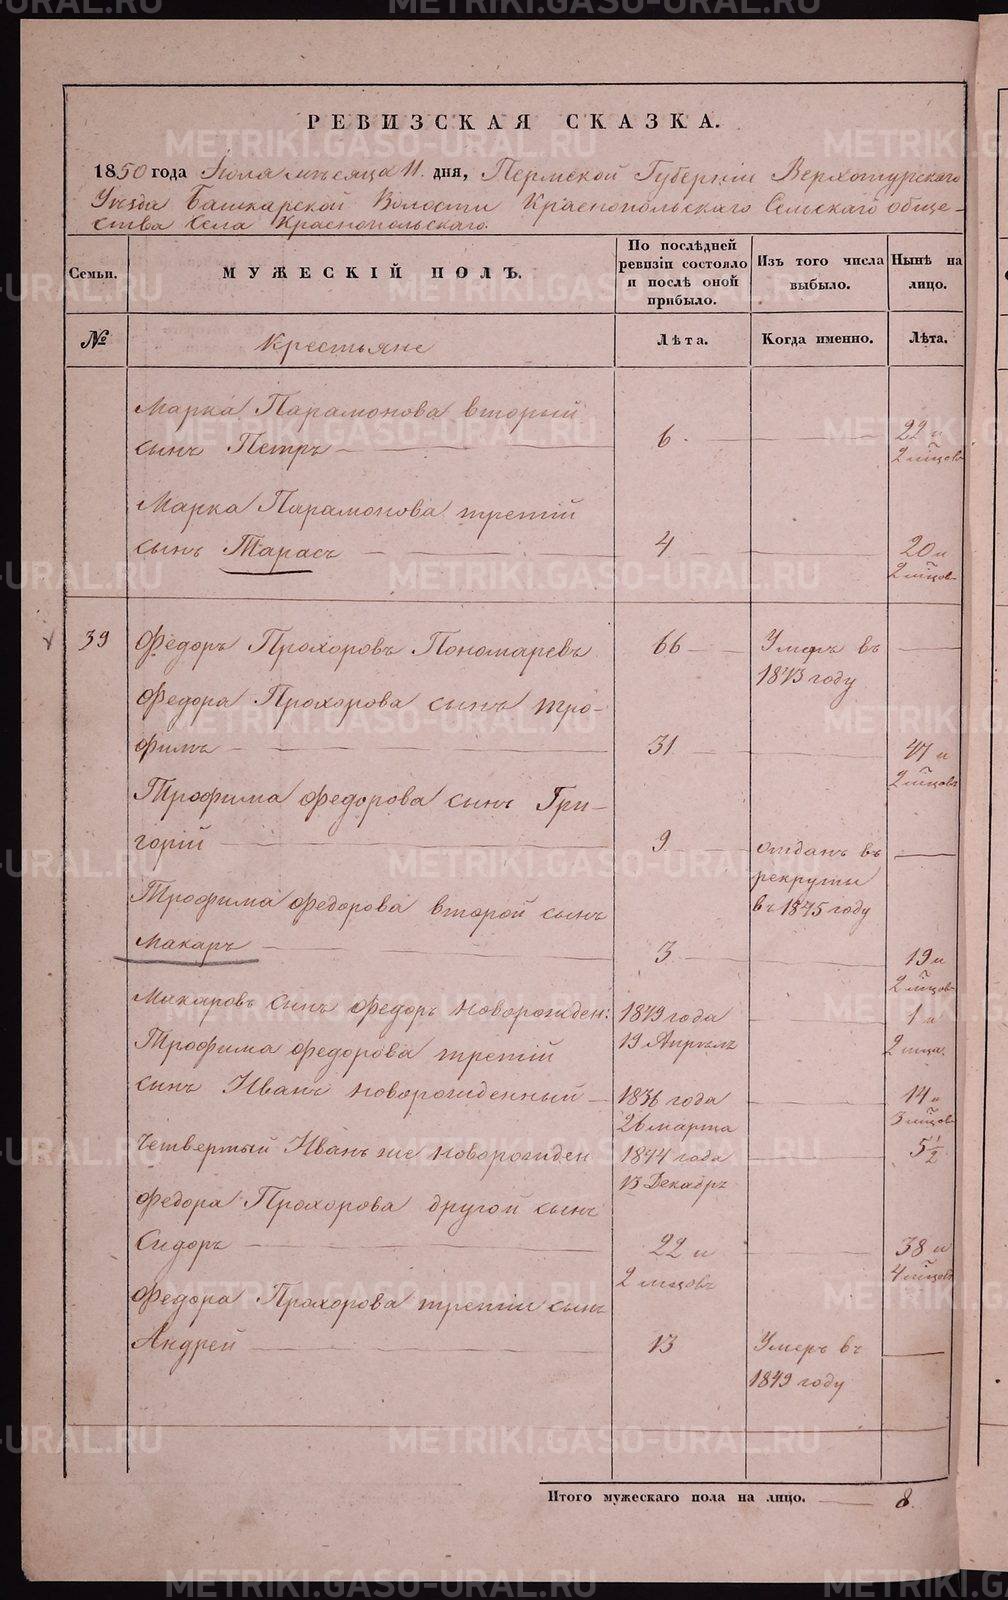 РЕВИЗСКАЯ СКАЗКА.
1850 года Июля мѣсяца 11. дня, Пермской Губерніи Верхотурскаго
Уѣзда Башкарской Волости Краснопольскаго Сельскаго обще-
ства Села Краснопольскаго.
Семьи.
МУЖЕСКІЙ ПОЛЪ.
По послѣдней
ревизіи состояло
и послѣ оной
прибыло.
Изъ того числа
выбыло.
Нынѣ на
лицо.
№
Крестьяне
Лѣта.
Когда именно.
Лѣта.
Марка Парамонова вторый
сынъ Петръ — 6. — 22 и
2 мѣсцов
Марка Парамонова третій
сынъ Тарасъ — 4 — 20 и
2 мѣсцов
39 Федоръ Прохоровъ Пономаревъ 66 — Умеръ въ —
1843 году
Федора Прохорова сынъ Тро-
фимъ — 31 — 47 и
2 мѣсцовъ
Трофима Федорова сынъ Гри-
горій — 9 — отданъ въ —
рекруты
въ 1845 году
Трофима Федорова второй сынъ
Макаръ — 3 — 19 и
2 мѣсцов
Макаровъ сынъ Федоръ новорожден: 1849 года — 1 и
19 Апрѣлъ 2 мѣсца.
Трофима Федорова третій
сынъ Иванъ новорожденный — 1836 года — 14 и
26 марта 3 мѣсцов
Четвертый Иванъ же новорожден 1844 года — 5 1/2
13 Декабръ
Федора Прохорова другой сынъ
Сидоръ — 22 и — 38 и
2 мѣсцовъ 4 мѣсцовъ
Федора Прохорова третій сынъ
Андрей — 13 Умеръ въ —
1849 году
Итого мужескаго пола на лицо. — 8.
METRIKI.GASO-URAL.RU